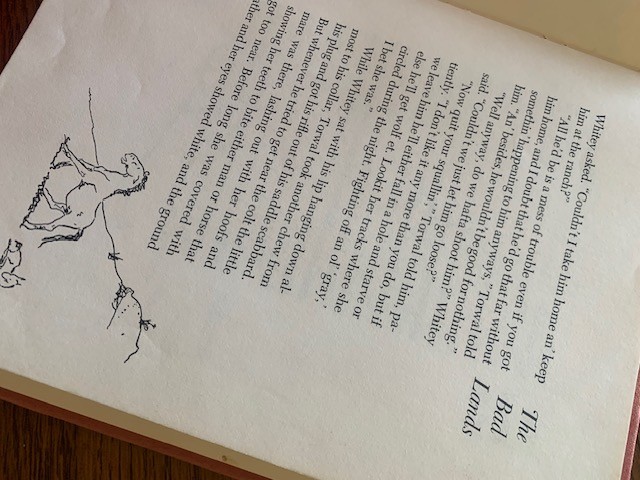 The
Bad
Lands
Whitey asked, "Couldn't I take him home an' keep
him at the ranch?"
"All he'd be is a mess of trouble even if you got
him home, and I doubt that he'd go that far without
somethin' happening to him anyways," Torwal told
him. "An' besides, he wouldn't be good for nothing."
"Well anyway, do we hafta shoot him?" Whitey
said. "Couldn't we just let him go loose?"
"Now quit you squallin'," Torwal told him pa-
tiently. "I don't like it any more than you do, but if
we leave him he'll either fall in a hole and starve or
else he'll get wolf et. Lookit her tracks where she
circled during the night. Fighting off an ol' gray,
I bet she was."
While Whitey sat with his lip hanging down al-
most to his collar, Torwal took another chew from
his plug and got his rifle out of his saddle scabbard.
But whenever he tried to get near the colt the little
mare was there, lashing out with her hoofs and
showing her teeth to bite either man or horse that
got too near. Before long she was covered with
ather and her eyes showed white, and the ground